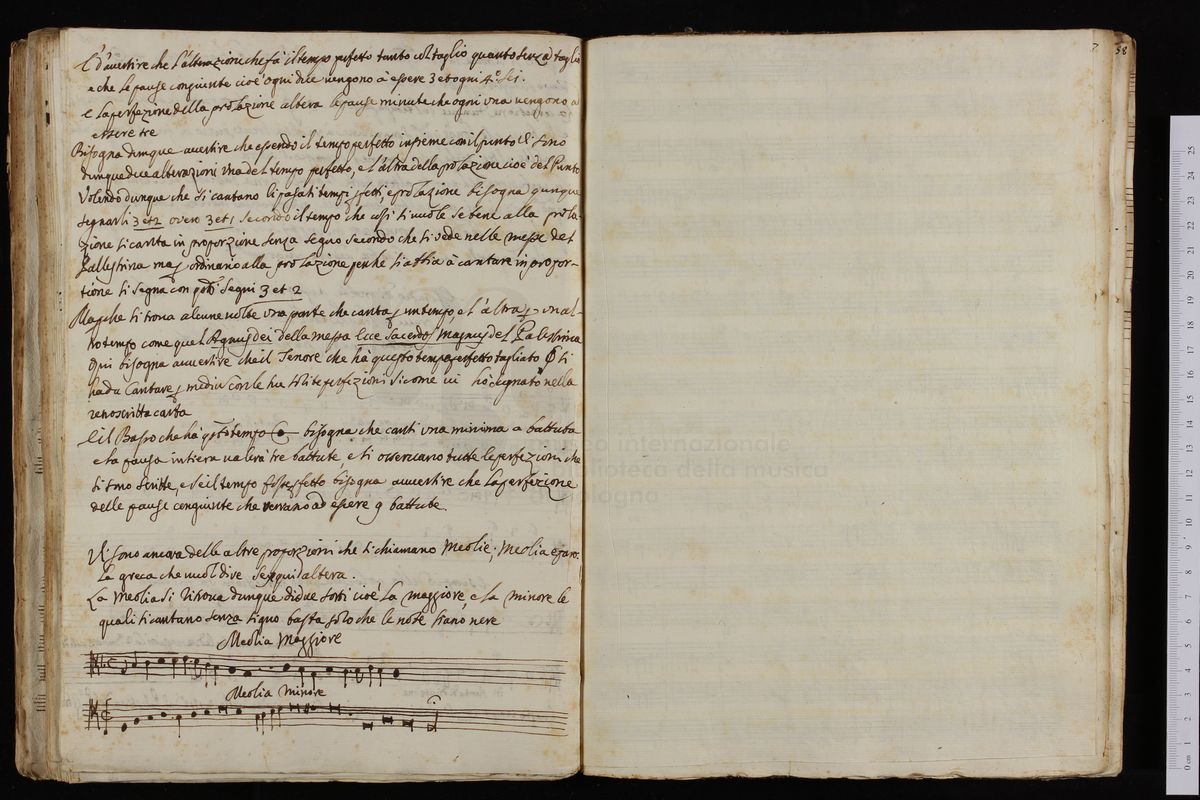 E d'avertire che l'alterazioni che fà il tempo perfetto tanto col taglio quanto senza taglio
e che le pause congiunte cioè ogni due vengono à essere 3 et ogni 4º sei.
e la perfezione della prolazione altera le pause minute che ogni una vengono a
essere tre
Bisogna dunque avvertire che essendo il tempo perfetto insieme con il punto vi sono
dunque due alterazioni una del tempo perfetto, e l'altra della prolazione cioè del Punto
Volendo dunque che si cantano li tempi e prolazione bisogna dunque
segnarli 3 et 2 overo 3 et 1 secondo il tempo che così si vuole se bene alla prola-
zione si canta in proporzione senza segno secondo che si vede nelle messe del
Pallestrina ma ordinario alla prolazione perche s'abbia à cantare in propor-
tione si segna con segni 3 et 2
Ma perche si trova alcune volte una parte che canta un tempo e l'altra un al-
tro tempo come quel Agnus dei della messa Ecce Sacerdos magnus del Palestrina
Qui bisogna avvertire che il Tenore che hà questo tempo perfetto tagliato Φ si
ha da Cantare con le sue solite perfezioni sicome vi hò segnato nella
retroscritta carta
E il Basso che ha tempo bisogna che canti una minima a battuta
e la pausa intiera valerà tre battute e si osservano tutte le perfezioni che
si sono scritte, e se il tempo bisogna avvertire che la perfezione
delle pause congiunte che verrano ad essere 9 battute.
Vi sono ancora delle altre proporzioni che si chiamano Meolie; Meolia e paro
la greca che vuol dire sesquialtera.
La Meolia si ritrova dunque di due sorti cioè la maggiore, e la minore le
quali si cantano senza signo basta solo che le note siano nere
Meolia Maggiore
Meolia minore
38
museo internazionale
e biblioteca della musica
di bologna
0 cm 1 2 3 4 5 6 7 8 9 10 11 12 13 14 15 16 17 18 19 20 21 22 23 24 25